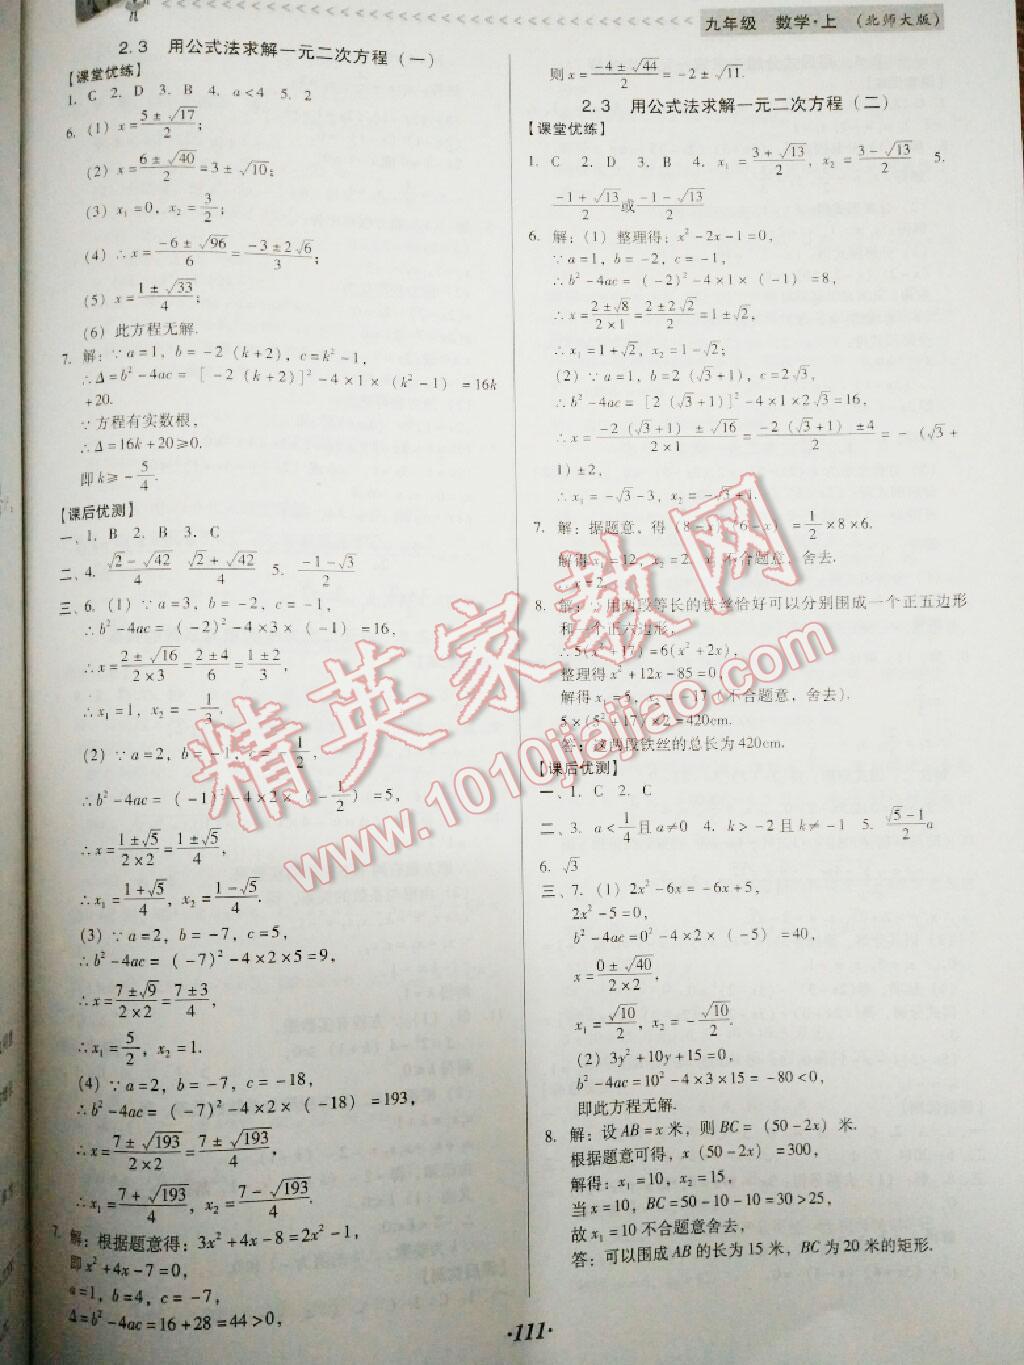 九年级 数学·上 (北师大版)
2.3 用公式法求解一元二次方程 (一)
【课堂优练】
1. C 2. D 3. B 4. a<4 5. 2
6. (1) x=(5±√17)/2;
(2) x=(6±√40)/2=3±√10;
(3) x₁=0, x₂=3/2;
(4) ∴x=(-6±√96)/6=(-3±2√6)/3;
(5) x=(1±√33)/4;
(6) 此方程无解.
7. 解:∵a=1, b=-2 (k+2), c=k²-1,
∴Δ=b²-4ac= [-2 (k+2)]²-4×1× (k²-1) =16k
+20.
∵方程有实数根,
∴Δ=16k+20≥0.
即k≥-5/4.
【课后优测】
一、1. B 2. B 3. C
二、4. (√2-√42)/4 (√2+√42)/4 5. (-1-√3)/2
三、6. (1) ∵a=3, b=-2, c=-1,
∴b²-4ac= (-2)²-4×3× (-1) =16,
∴x=(2±√16)/(2×3)=(2±4)/6=(1±2)/3,
∴x₁=1, x₂=-1/3.
(2) ∵a=2, b=-1, c=-1/2,
∴b²-4ac= (-1)²-4×2× (-1/2) =5,
∴x=(1±√5)/(2×2)=(1±√5)/4,
∴x₁=(1+√5)/4, x₂=(1-√5)/4.
(3) ∵a=2, b=-7, c=5,
∴b²-4ac= (-7)²-4×2×5=9,
∴x=(7±√9)/(2×2)=(7±3)/4,
∴x₁=5/2, x₂=1.
(4) ∵a=2, b=-7, c=-18,
∴b²-4ac= (-7)²-4×2× (-18) =193,
∴x=(7±√193)/(2×2)=(7±√193)/4,
∴x₁=(7+√193)/4, x₂=(7-√193)/4.
7. 解:根据题意得:3x²+4x-8=2x²-1,
即x²+4x-7=0,
a=1, b=4, c=-7,
Δ=b²-4ac=16+28=44>0,
则x=(-4±√44)/2=-2±√11.
2.3 用公式法求解一元二次方程 (二)
【课堂优练】
1. C 2. D 3. B 4. x₁=(3+√13)/2, x₂=(3-√13)/2 5.
(-1+√13)/2或(-1-√13)/2
6. 解:(1) 整理得:x²-2x-1=0,
∵a=1, b=-2, c=-1,
∴b²-4ac= (-2)²-4×1× (-1) =8,
∴x=(2±√8)/(2×1)=(2±2√2)/2=1±√2,
∴x₁=1+√2, x₂=1-√2;
(2) ∵a=1, b=2 (√3+1), c=2√3,
∴b²-4ac= [2 (√3+1)]²-4×1×2√3=16,
∴x=(-2 (√3+1) ±√16)/(2×1)=(-2 (√3+1) ±4)/2=- (√3+
1)±2,
∴x₁=-√3-3, x₂=-√3+1.
7. 解:据题意,得 (8-x) (6-x) =1/2×8×6.
解得x₁=12, x₂=2, x₁不合题意,舍去.
∴x=2.
8. 解:∵用两段等长的铁丝恰好可以分别围成一个正五边形
和一个正六边形,
∴5(x²+17)=6(x²+2x),
整理得x²+12x-85=0,
解得x₁=5, x₂=-17(不合题意,舍去).
5×(5²+17)×2=420cm.
答:这两段铁丝的总长为420cm.
【课后优测】
一、1. C 2. C
二、3. a<1/4且a≠0 4. k>-2且k≠-1 5. (√5-1)/2 a
6. √3
三、7. (1) 2x²-6x=-6x+5,
2x²-5=0,
b²-4ac=0²-4×2× (-5) =40,
x=(0±√40)/(2×2),
x₁=√10/2, x₂=-√10/2.
(2) 3y²+10y+15=0,
b²-4ac=10²-4×3×15=-80<0,
即此方程无解.
8. 解:设AB=x米,则BC= (50-2x) 米.
根据题意可得,x (50-2x) =300,
解得:x₁=10, x₂=15,
当x=10, BC=50-10-10=30>25,
故x₁=10不合题意舍去,
答:可以围成AB的长为15米,BC为20米的矩形.
·111·
精英家教网
www.1010jiajiao.com